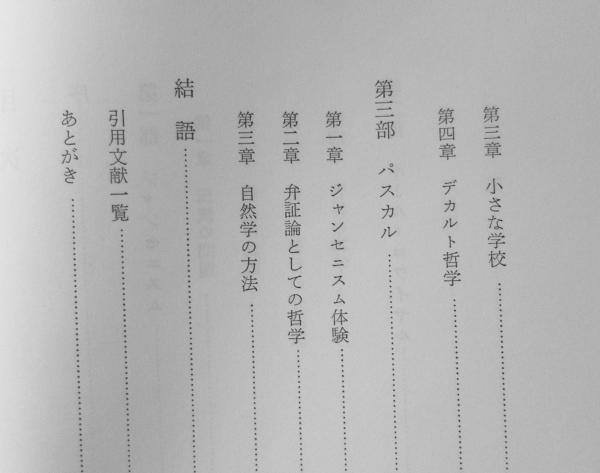 第三章　小さな学校
第四章　デカルト哲学
第三部　パスカル
第一章　ジャンセニスム体験
第二章　弁証論としての哲学
第三章　自然学の方法
結　語
引用文献一覧
あとがき